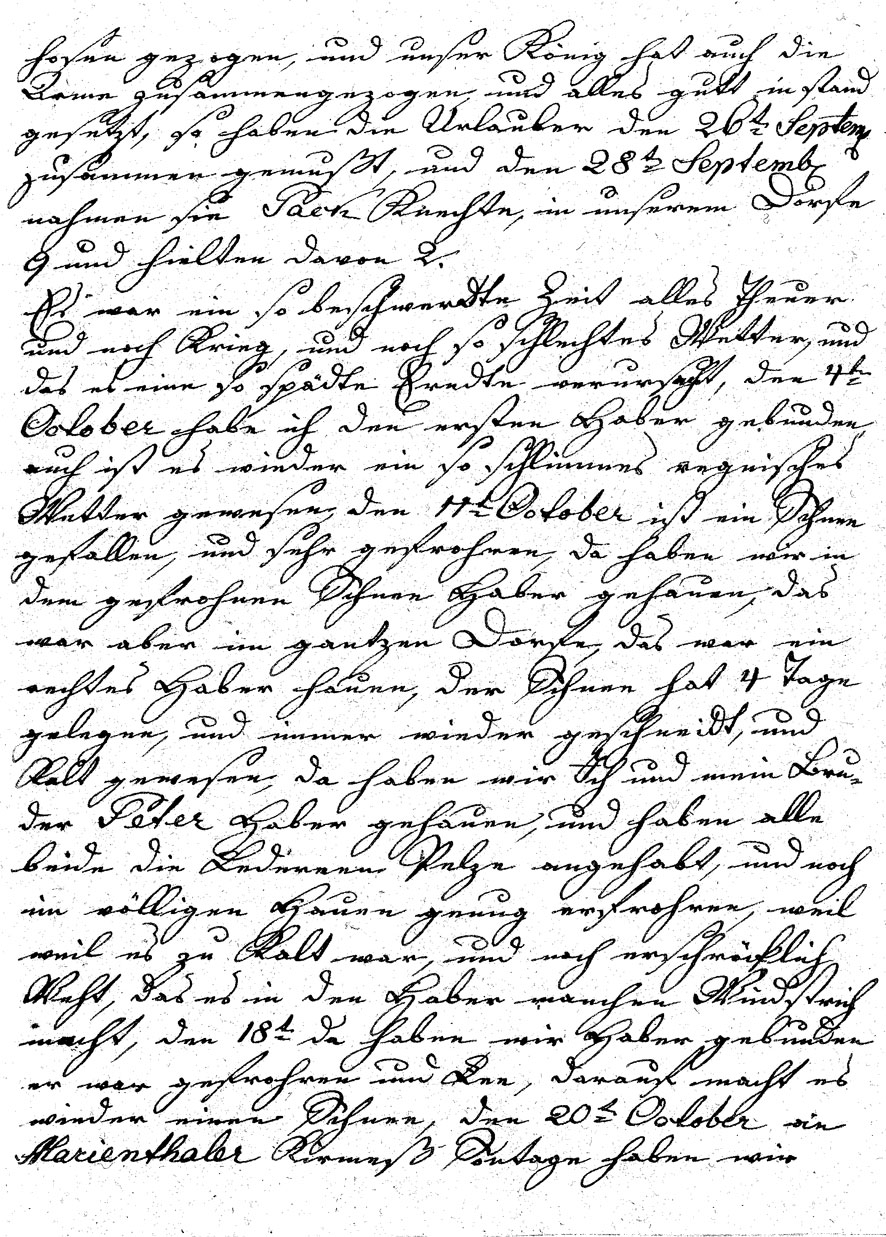 hosen gezogen, und unser König hat auch die
Arme zusammengezogen, und alles gutt in stand
gesetzt, so haben die Urlauber den 26t Septemb
zusammen gemußt, und den 28t Septemb
nahmen sie Pack Knechte, in unserem Dorfe
9 und hielten davon 2.
Es war ein so beschwerdte Zeit alles Theuer
und noch Krieg, und noch so schlechtes Wetter, und
das es eine so spädte Erndte verursacht, den 4t
October habe ich den ersten Haber gebunden,
auch ist es wieder ein so schlimmes regnisches
Wetter gewesen, den 11t October ist ein Schnee
gefallen, und sehr gefrohren, da haben wir in
dem gefrohnen Schnee Haber gehauen, das
war aber im gantzen Dorfe, das war ein
rechtes Haber hauen, der Schnee hat 4 Tage
gelegen, und immer wieder geschneidt, und
Kalt gewesen, da haben wir Ich und mein Bru-
der Peter Haber gehauen, und haben alle
beide die Ledernen Pelze angehabt, und noch
im völligen Hauen genug erfrohren, weil
weil es zu Kalt war, und noch erschröcklich
Weht, das es in den Haber manchen Windstrich
macht, den 18t da haben wir Haber gebunden
er war gefrohren und, darauf macht es
wieder einen Schnee, den 20t October am
Marienthaler Kirmeß Sontage haben wir